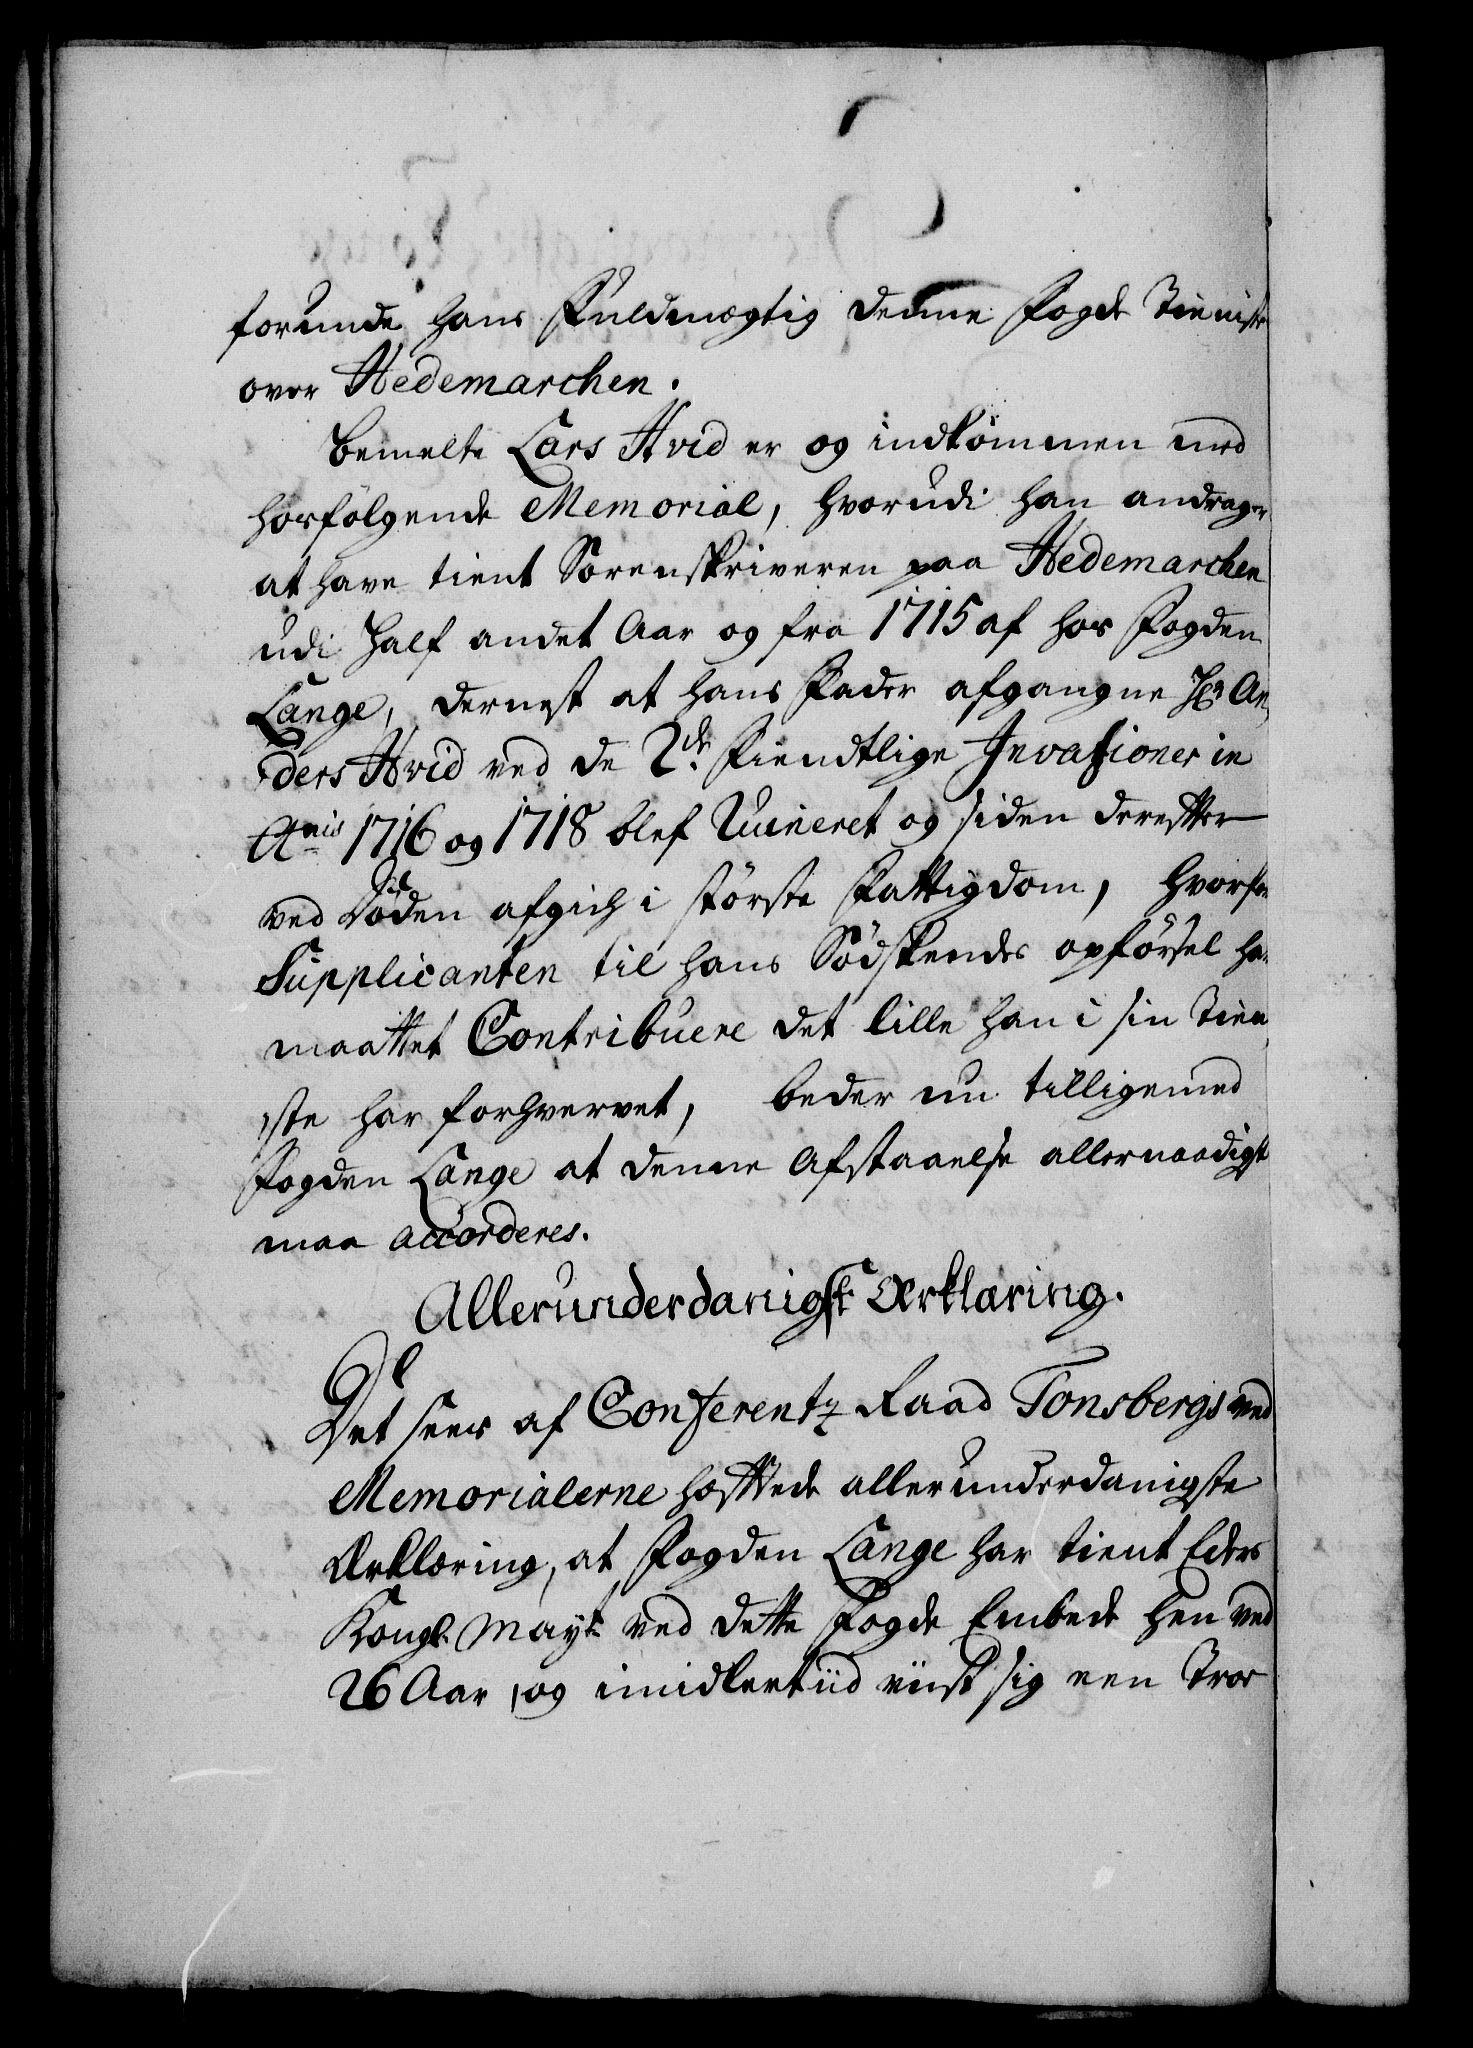 forunde hans Fuldmægtig denne Fogde Tieniste
over Hedemarchen.
bemelte Lars Hvid er og indkommen med
hosfölgende Memorial, hvorudi han andrager
at have tient Sorenskriveren paa Hedemarchen
udi Half andet Aar og fra 1715 af hos Fogden
Lange, dernest at hans Fader afgangne Hr An,
,ders Hvid ved de 2de Fiendtlige Invasioner in
Anis 1716 og 1718 blef Ruineret og siden derefter
ved Döden afgich i störste Fattigdom, hvorfor
Supplicanten til hans Södskendes opförsel har
maattet Contribuere det lille han i sin Tien,
,ste har forhvervet, beder nu tilligemed
Fogden Lange at denne Afstaaelse allernaadigst
maa accorderes.
Allerunderdanigste Erklæring.
Det sees af Conferentz Raad Tonsbergs ved
Memorialerne hæftede allerunderdanigste
Erklæring, at Fogden Lange har tient Eders
Kongl. Mayt. ved dette Fogde Embede hen ved
26 Aar, og imidlertiid viist sig een Troe